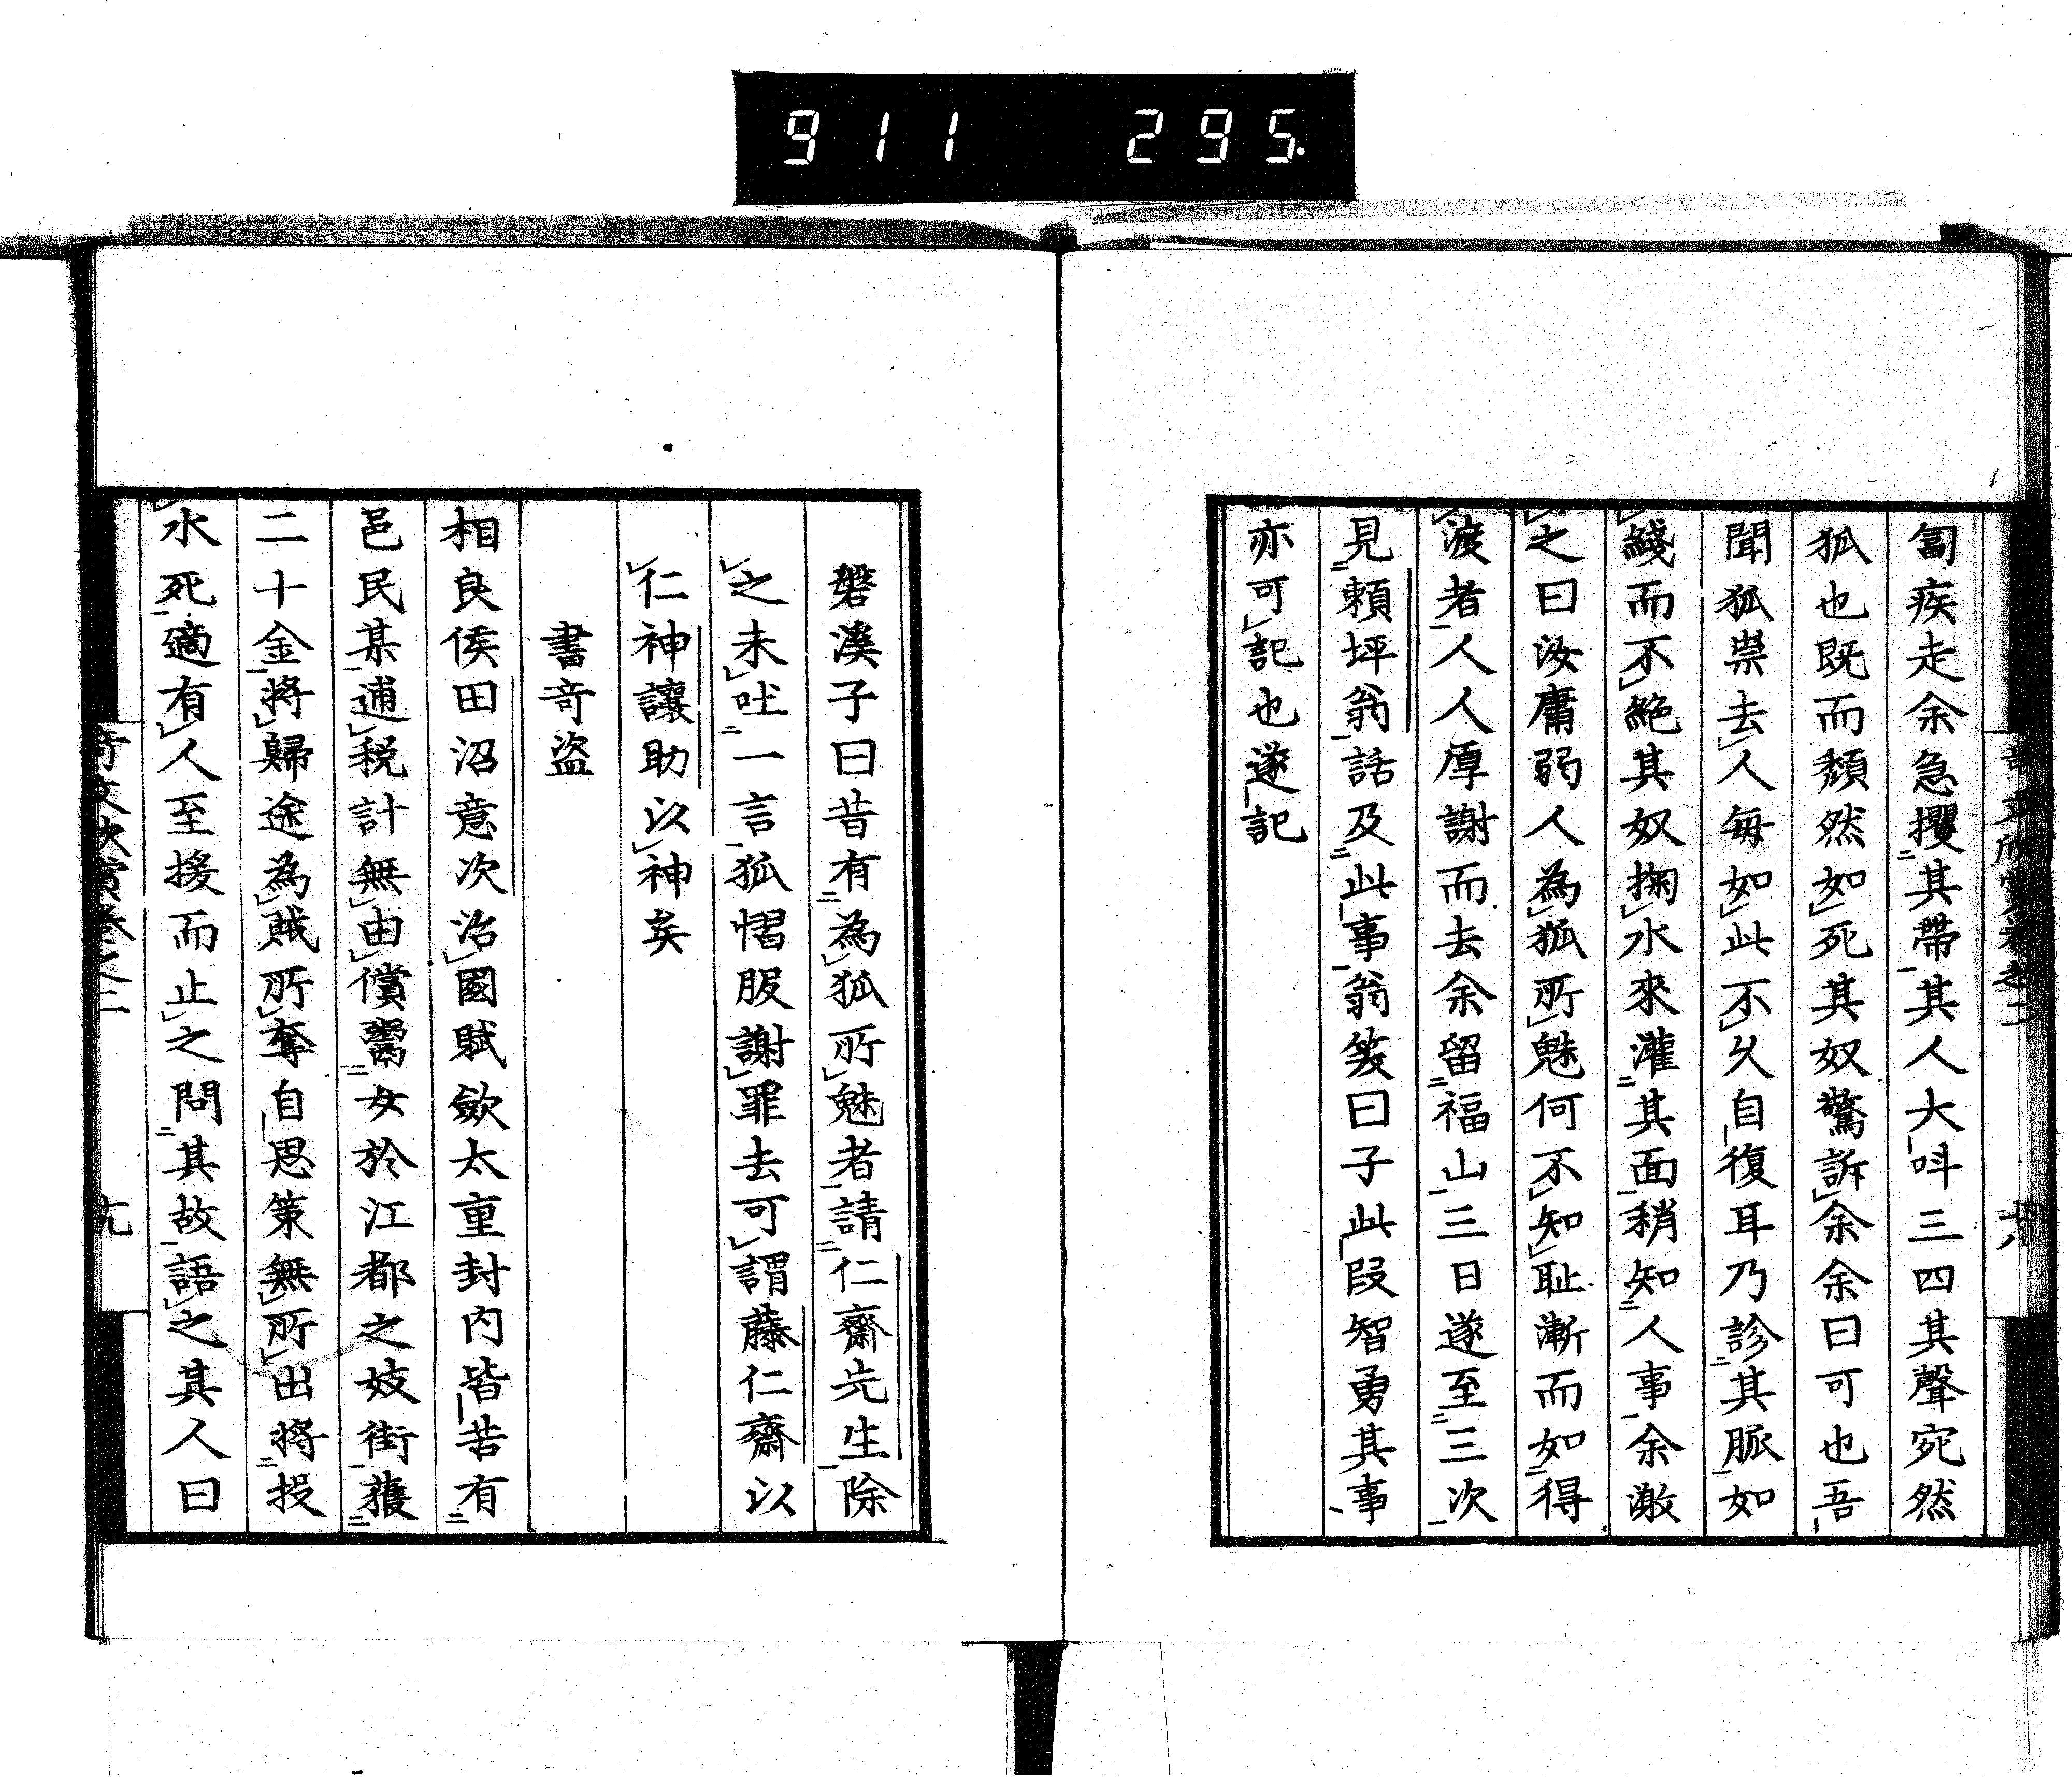 911 295.
匐疾走余急攫其帶其人大呌三四其聲宛然
狐也既而頹然如死其奴驚訴余余曰可也吾
聞狐祟去人每如此不久自復耳乃診其脈如
綫而不絶其奴掬水來灌其面稍知人事余激
之曰汝庸弱人為狐所魅何不知耻漸而如得
渡者人人厚謝而去余留福山三日遂至三次
見頼坪翁話及此事翁笑曰子此段智勇其事
亦可記也遂記
磐溪子曰昔有為狐所魅者請仁齋先生除
之未吐一言狐慴服謝罪去可謂藤仁齋以
仁神讓助以神矣
書奇盜
相良侯田沼意次治國賦斂太重封内皆苦有
邑民某逋税計無由償鬻女於江都之妓街獲
二十金將歸途為賊所奪自思策無所出將投
水死適有人至援而止之問其故語之其人曰
奇文欣賞卷之二